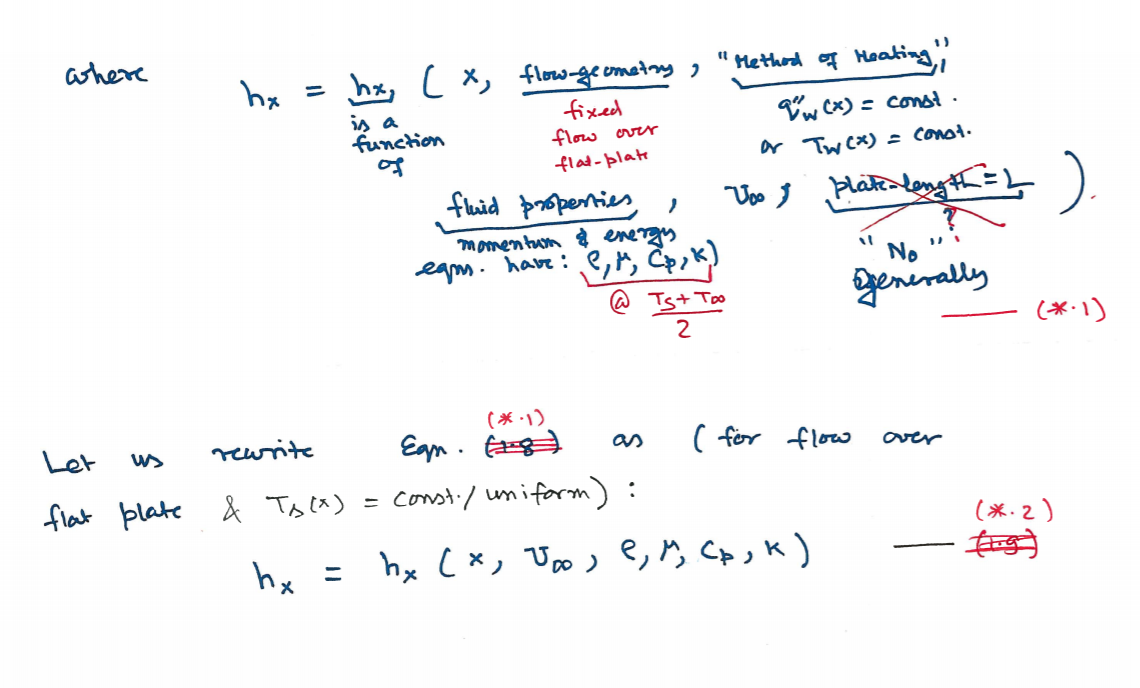 where
hx = hx, ( x, flow-geometry, "Method of Heating",
is a function of
fixed flow over flat-plate
q"w(x) = const.
or Tw(x) = const.
fluid properties, U∞, plate-length = L ).
momentum & energy
eqns. have: ρ, μ, Cp, k)
?
"No"
generally
@ Ts + T∞
2
(*.1)
(*.1)
Let us rewrite Eqn. (1.8) as (for flow over
flat plate & Ts(x) = const./uniform) :
(*.2)
hx = hx (x, U∞, ρ, μ, Cp, k) (1.9)